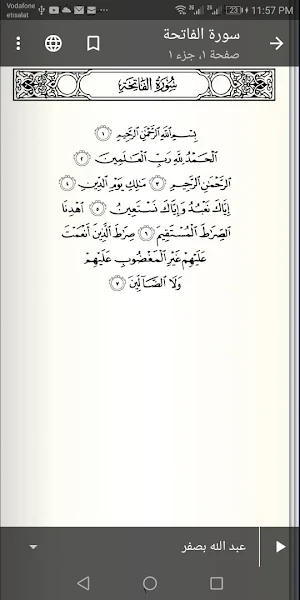 Vodafone
etisalat
2G
2G
23
11:57 PM
سورة الفاتحة
صفحة ١، جزء ١
سُورَةُ الفَاتِحَةِ
بِسْمِ ٱللَّهِ ٱلرَّحْمَٰنِ ٱلرَّحِيمِ ١
ٱلْحَمْدُ لِلَّهِ رَبِّ ٱلْعَٰلَمِينَ ٢
ٱلرَّحْمَٰنِ ٱلرَّحِيمِ ٣ مَٰلِكِ يَوْمِ ٱلدِّينِ ٤
إِيَّاكَ نَعْبُدُ وَإِيَّاكَ نَسْتَعِينُ ٥ ٱهْدِنَا
ٱلصِّرَٰطَ ٱلْمُسْتَقِيمَ ٦ صِرَٰطَ ٱلَّذِينَ أَنْعَمْتَ
عَلَيْهِمْ غَيْرِ ٱلْمَغْضُوبِ عَلَيْهِمْ
وَلَا ٱلضَّآلِّينَ ٧
عبد الله بصفر